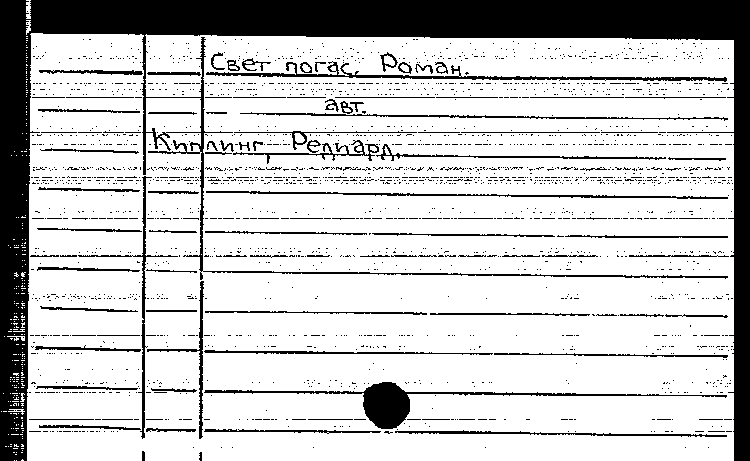 Свет погас. Роман.
авт.
Киплинг, Редиард.